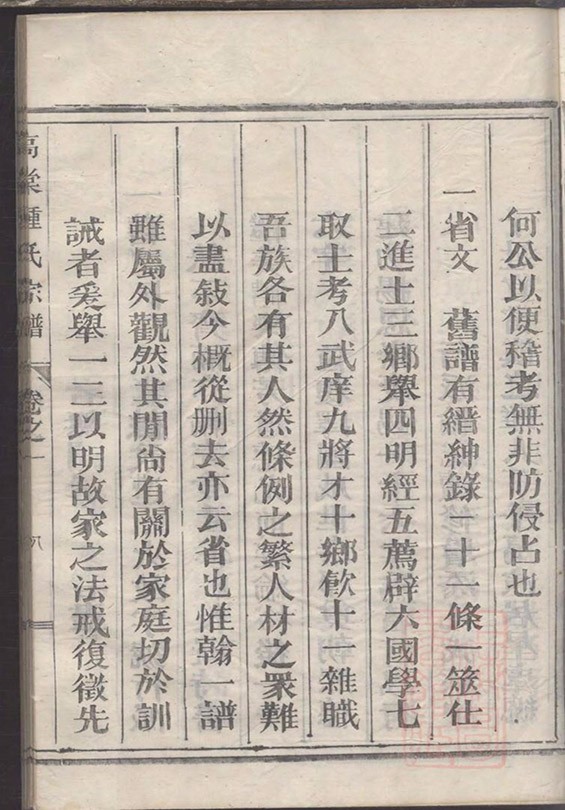 何公以便稽考無非防侵占也
一省文 舊譜有縉紳錄一十一條一筮仕
二進士三鄉舉四明經五薦辟六國學七
取士考八武庠九將才十鄉飲十一雜職
吾族各有其人然條例之繁人材之眾難
以盡敍今概從删去亦云省也惟翰一譜
雖屬外觀然其閒尚有關於家庭切於訓
誡者爰舉一二以明故家之法戒復徵先
高棠鍾氏宗譜 卷之一 八